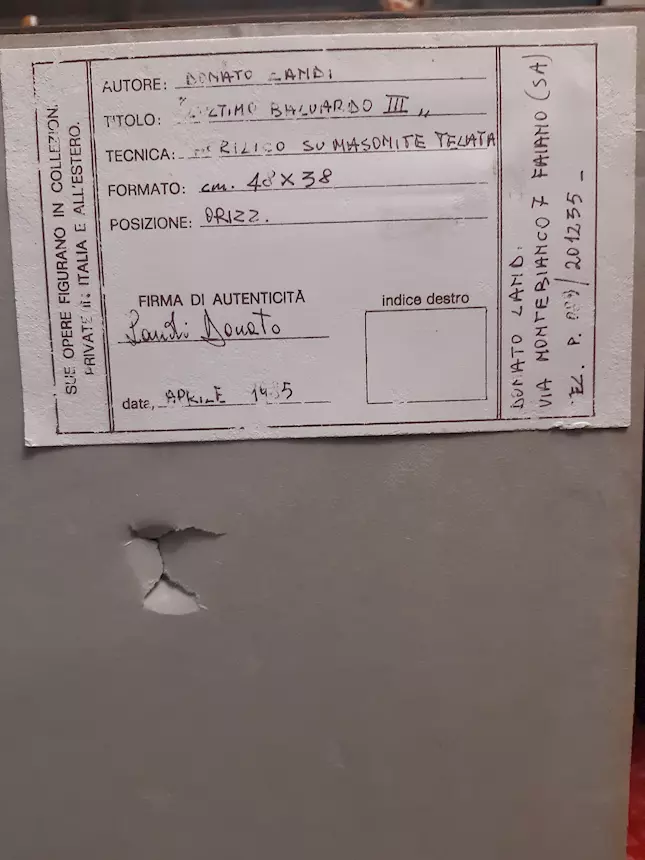 SUE OPERE FIGURANO IN COLLEZION.
PRIVATE IN ITALIA E ALL'ESTERO.
AUTORE: DONATO LANDI
TITOLO: "ULTIMO BALUARDO III"
TECNICA: ACRILICO SU MASONITE TELATA
FORMATO: cm. 48 X 38
POSIZIONE: ORIZZ.
FIRMA DI AUTENTICITÀ
Landi Donato
data, APRILE
indice destro
DONATO LANDI
VIA MONTEBIANCO 7 FAIANO (SA)
TEL. P. 089/201235 -